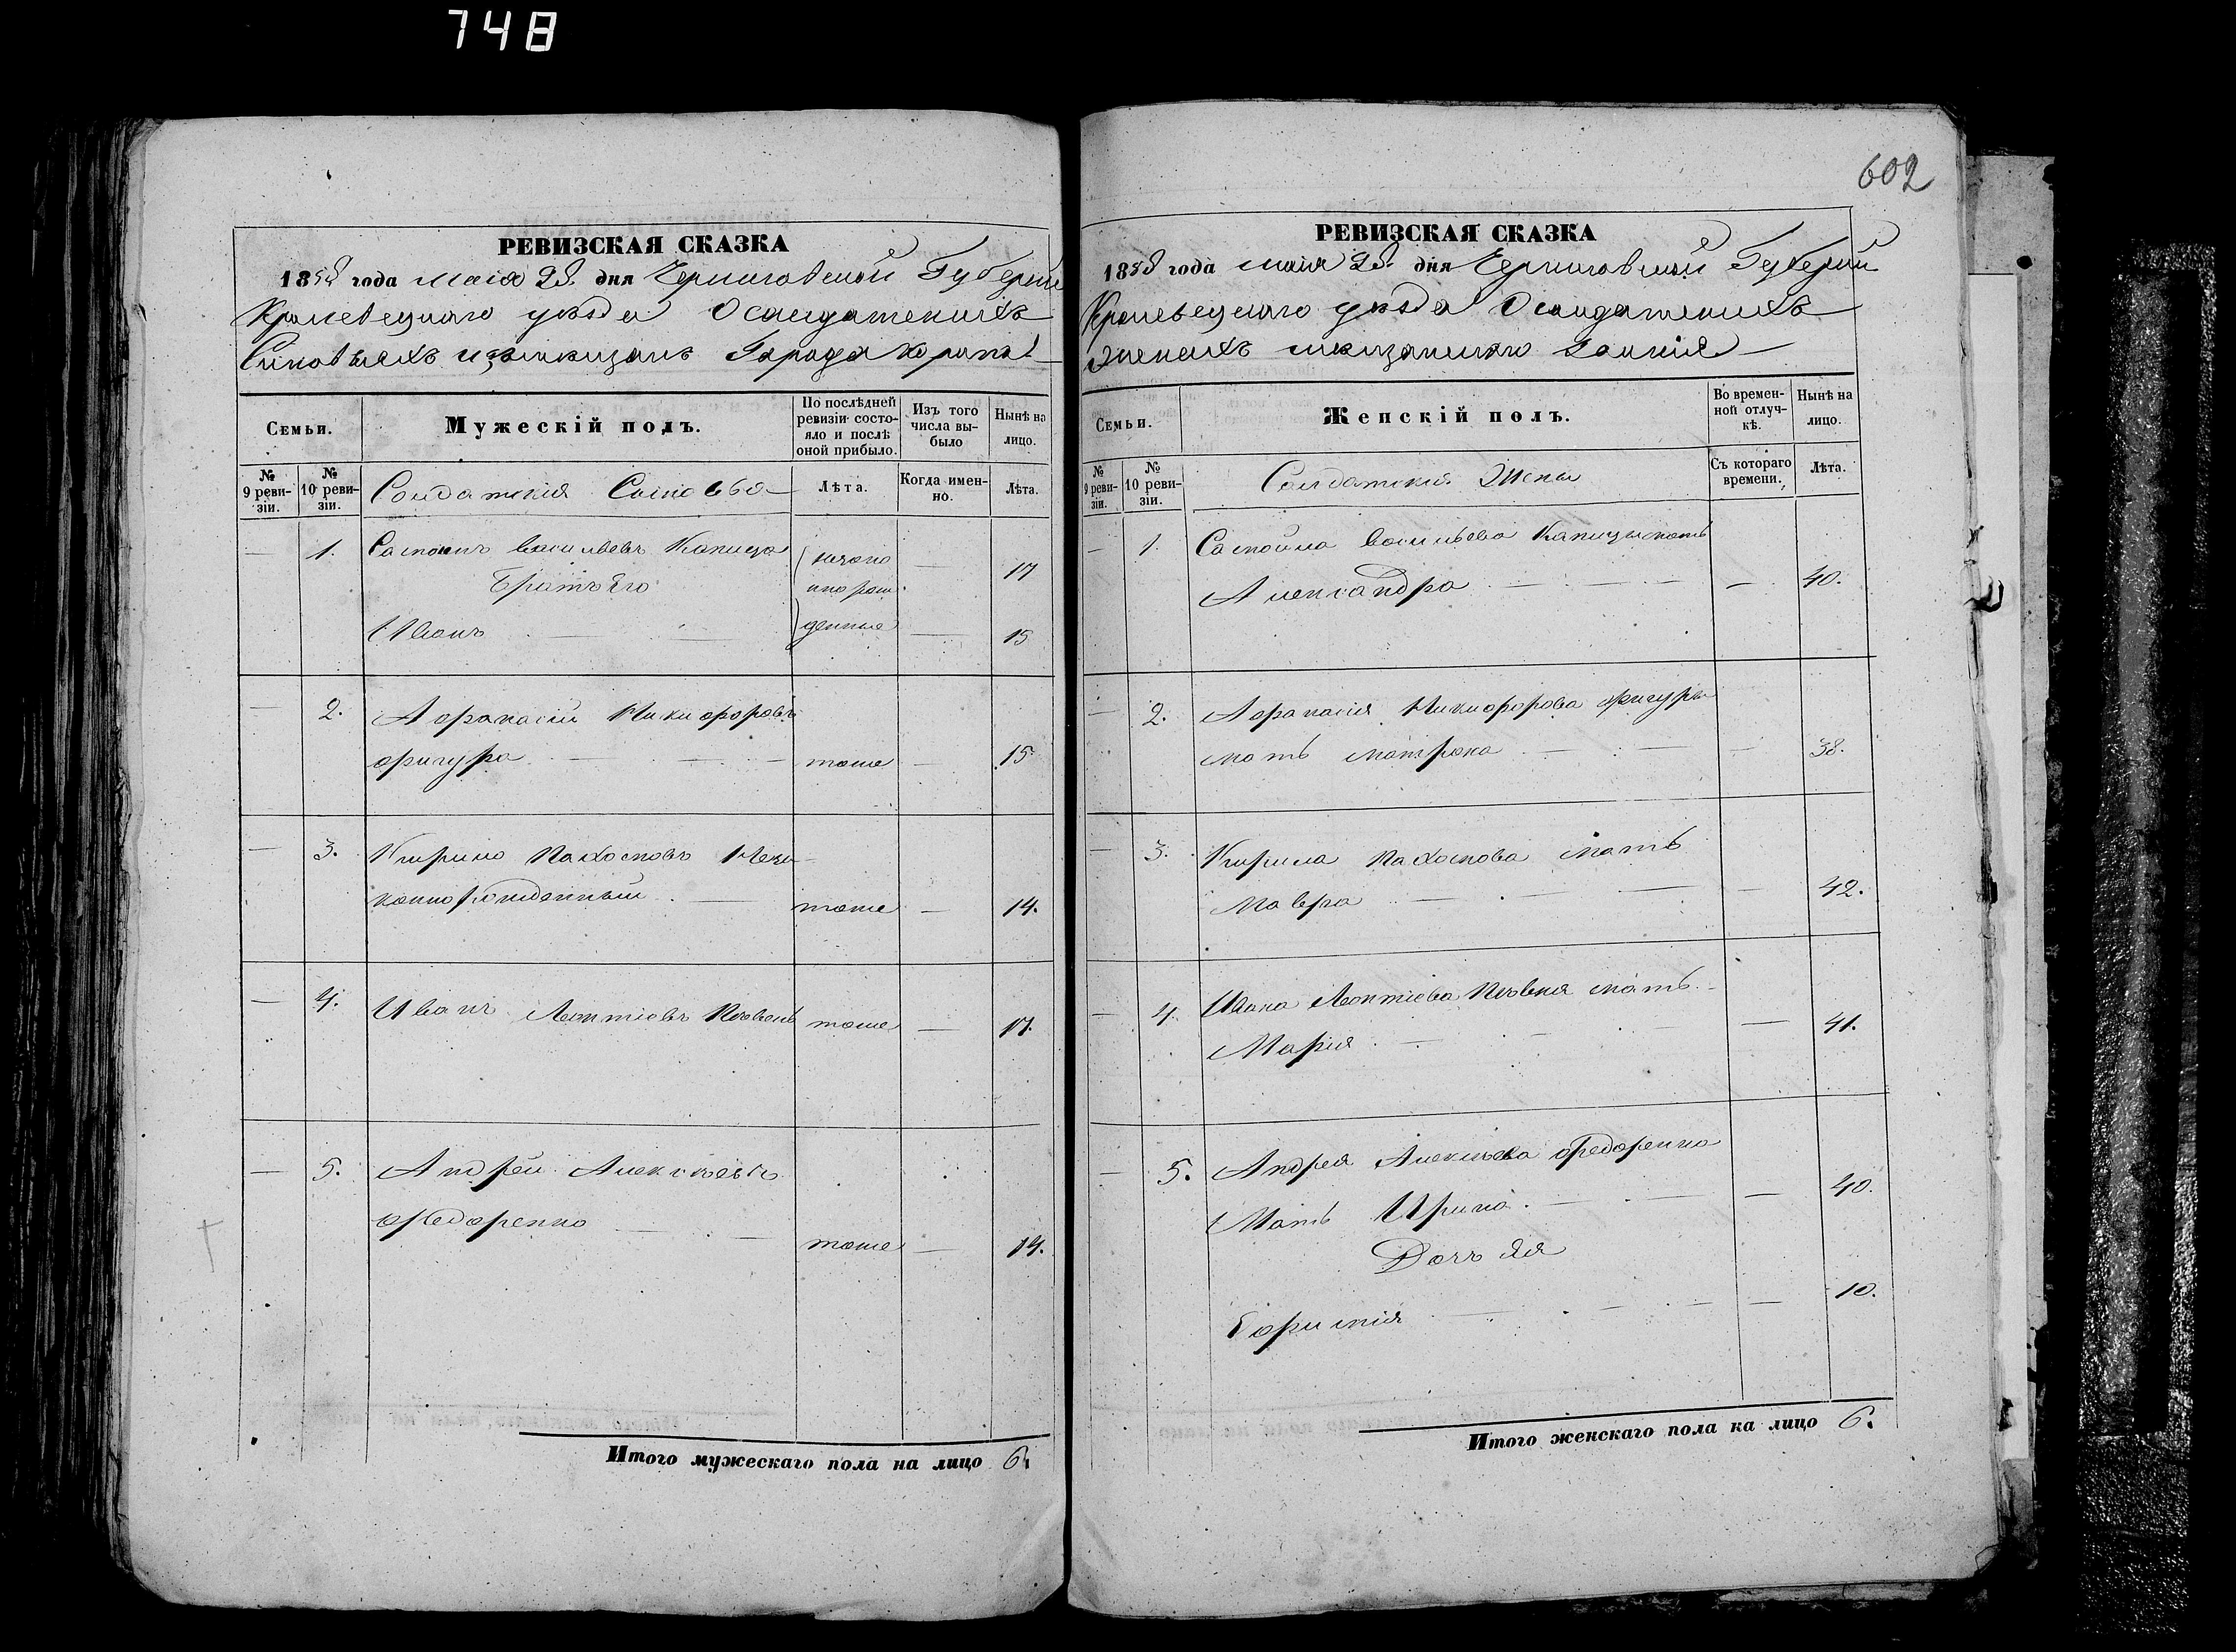 748
РЕВИЗСКАЯ СКАЗКА
1858 года маія 28. дня Черниговской Губерніи
Кролевецкаго уѣзда О салдатскихъ
Города Коропа
Семьи.
Мужескій полъ.
По послѣдней ревизіи состояло и послѣ оной прибыло.
Изъ того числа выбыло
Нынѣ на лицо.
№ 9 ревизіи.
№ 10 ревизіи.
Солдатскія Сыновья
Лѣта.
Когда именно.
Лѣта.
— 1. Васильевъ Капица — 17
Братъ Его
Иванъ — 15
— 2. Афанасій Никифоровъ
фигура тоже — 15
— 3. Кирило Пахомовъ Неза-
коннорожденный тоже — 14.
— 4. Иванъ Леонтіевъ тоже — 17.
— 5. Андрей Алексѣевъ
Федоренко тоже — 14.
Итого мужескаго пола на лицо 6.
602
РЕВИЗСКАЯ СКАЗКА
1858 года маія 28. дня Черниговской Губерніи
Кролевецкаго уѣзда О салдатскихъ
женахъ
Семьи.
Женскій полъ.
Во временной отлучкѣ.
Нынѣ на лицо.
№ 9 ревизіи.
№ 10 ревизіи.
Солдатскія Жены
Съ котораго времени.
Лѣта.
— 1. Васильева Капицы мать
Александра — 40.
— 2. Афанасія Никифорова фигуры
мать Матрона — 38.
— 3. Кирила Пахомова мать
Мавра — 42.
— 4. Ивана Леонтіева мать
Марія — 41.
— 5. Андрея Алексѣева Федоренка
Мать Ирина — 40.
Дочъ Ея
Ефимія — 10.
Итого женскаго пола на лицо 6.